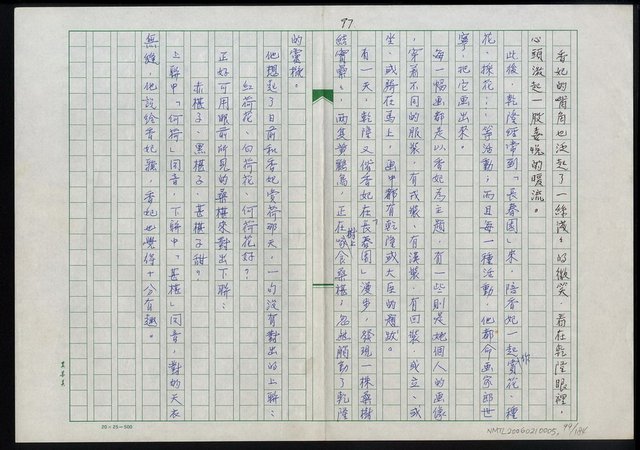 97.
香妃的嘴角也泛起了一絲淺淺的微笑,看在乾隆眼裡,
心頭滋起一股喜悅的暖流。
此後,乾隆經常到「長春園」來,陪香妃一起賞花、種
花、採花……等活動;而且每一種活動,他都命画家郎世
寧,把它画出來。
每一幅画都是以香妃為主題,有一些則是她個人的画像
,穿着不同的服裝,有戎裝、有漢裝、有回裝,或立、或
坐、或騎在馬上,画中都有乾隆或大臣的題跋。
有一天,乾隆又偕香妃在「長春園」漫步,發現一株桑樹
結實纍纍,兩隻黃鸝鳥,正在樹上啄食桑椹,忽然觸動了乾隆
的靈機。
他想起了日前和香妃賞荷那天,一句沒有對出的上聯:
紅荷花、白荷花、何荷花好?
正好可用眼前所見的桑椹來對出下聯:
赤椹子、黑椹子、甚椹子甜?
上聯中「何荷」同音,下聯中「甚椹」同音,對的天衣
無縫,他說給香妃聽,香妃也覺得十分有趣。
20×25=500
NMTL20060210005,
99/186